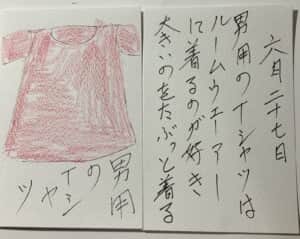 六月二十七日
男用のTシャツは
ルームウェアー
に着るのが好き
大きいのをたぶっと着る
男用
のTシ
ャツ